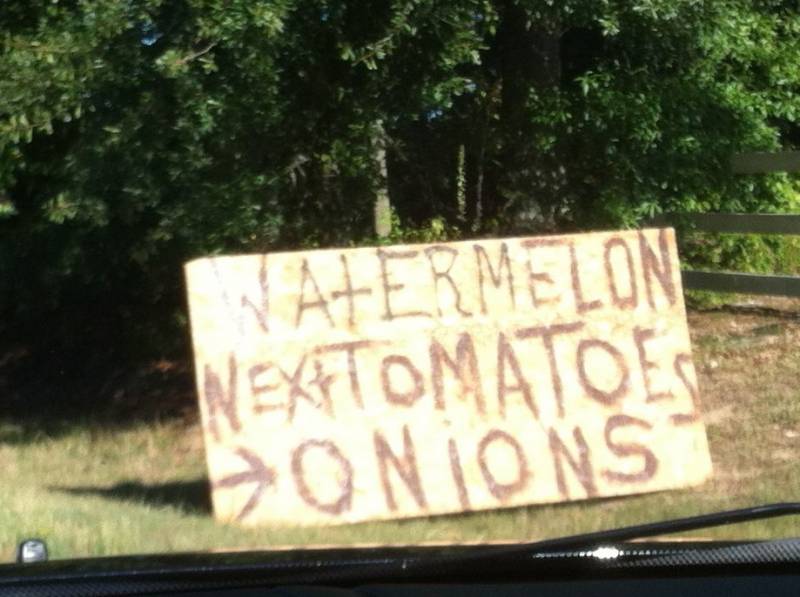 WAtERMELON
NExt TOMATOES
→ ONIONS